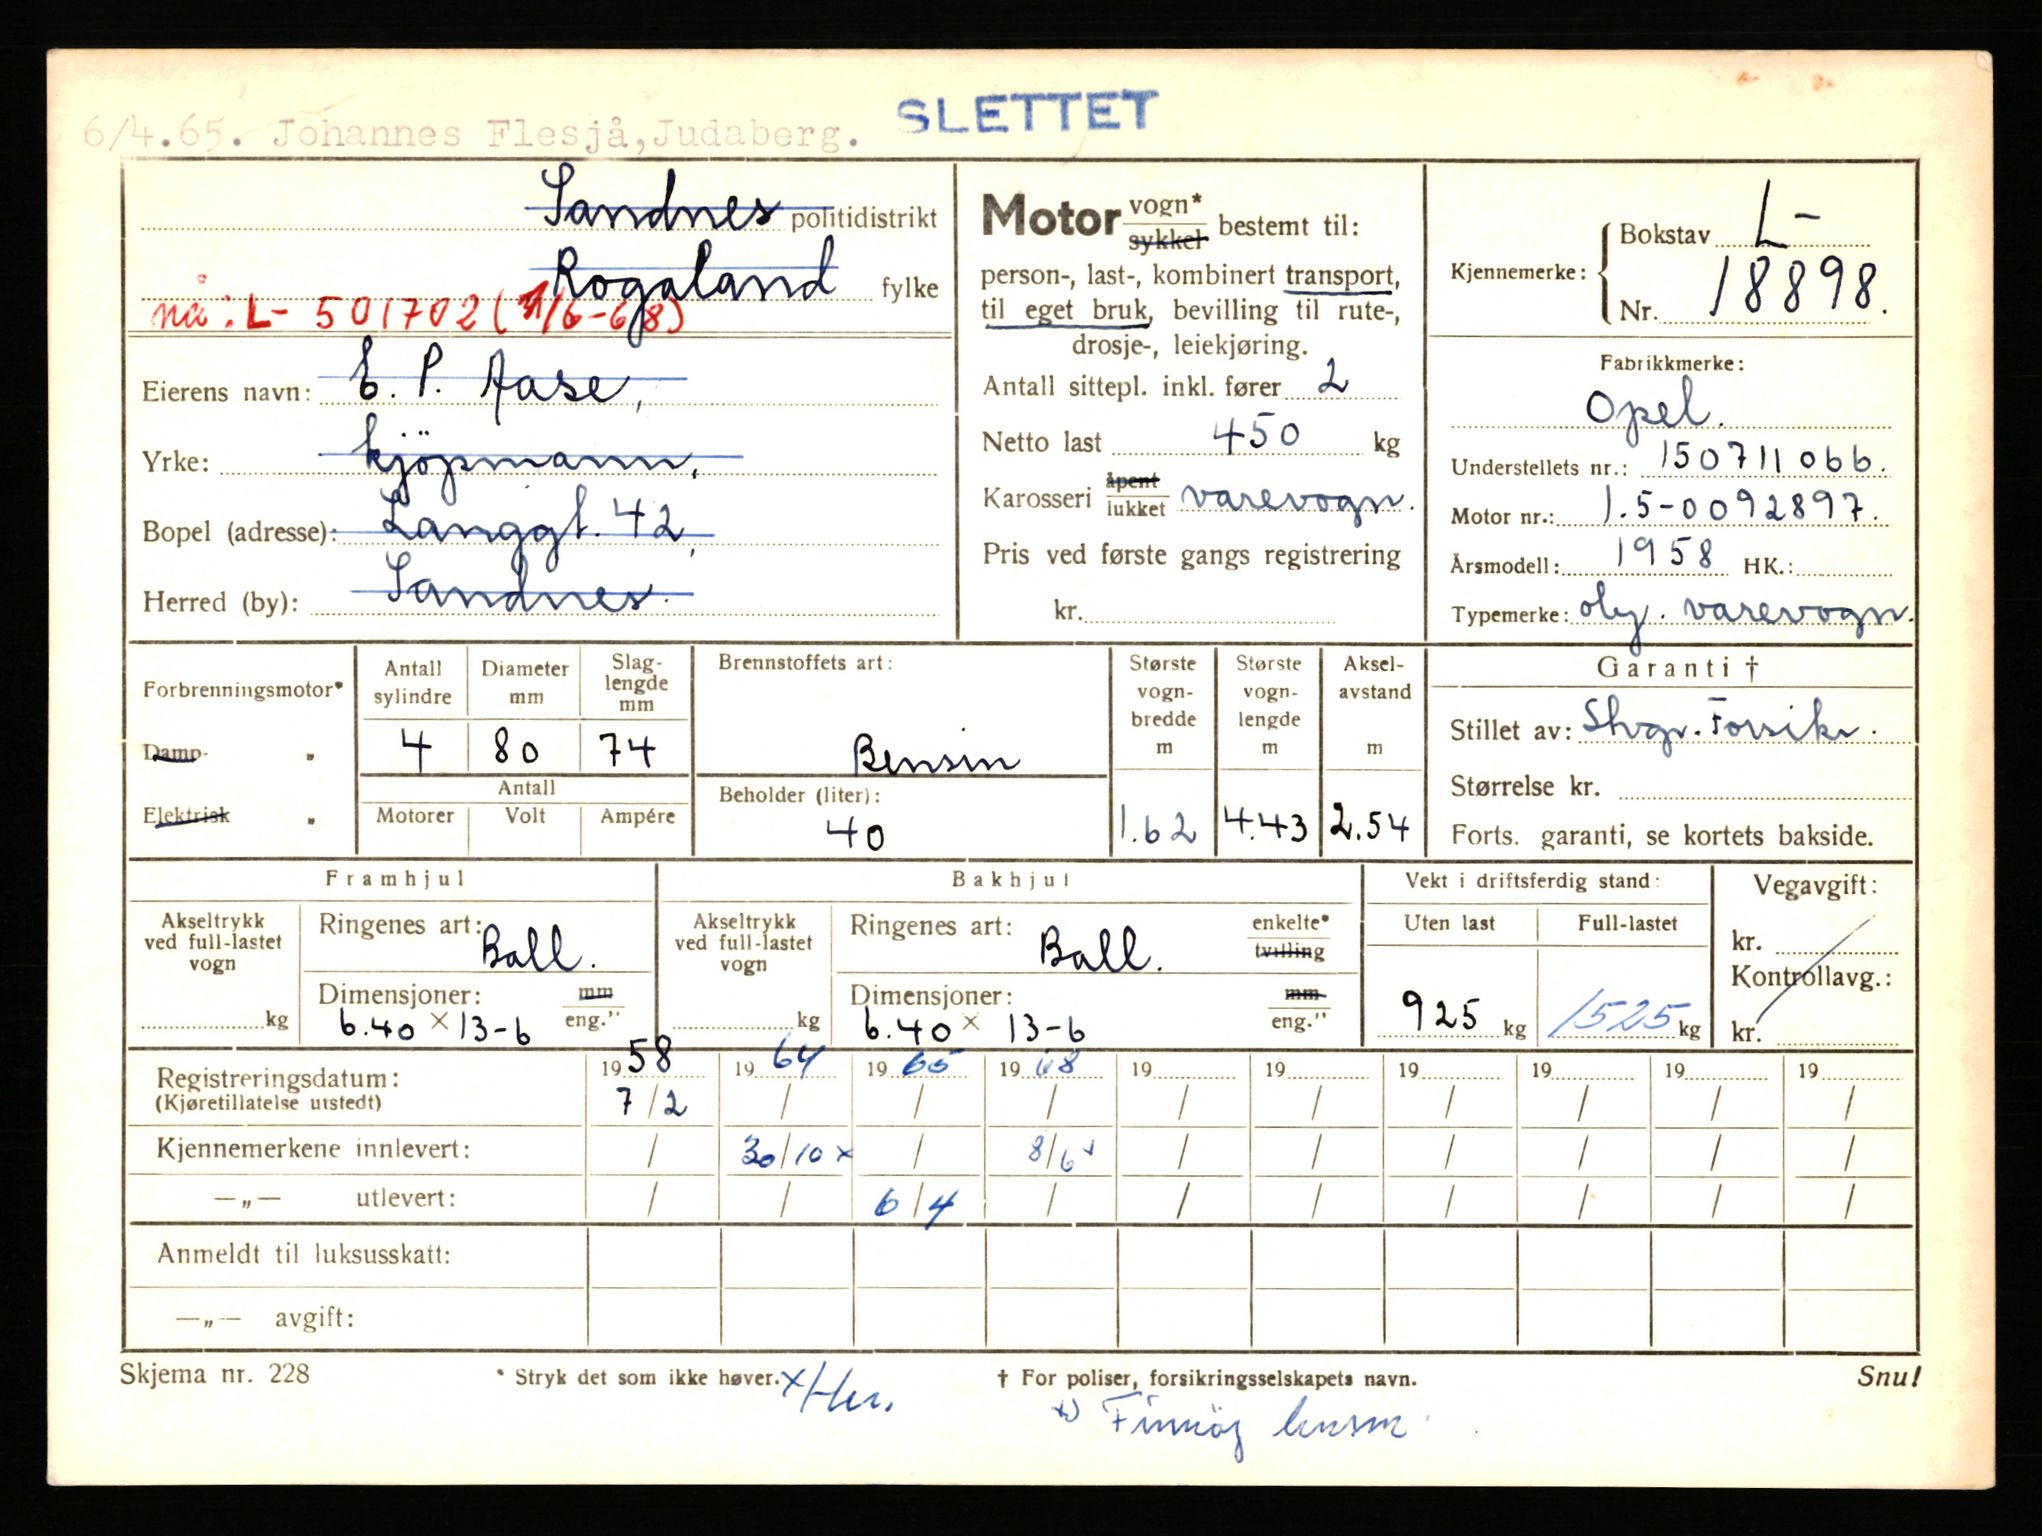 SLETTET
6/4.65. Johannes Flesjå, Judaberg.
Sandnes politidistrikt
Rogaland fylke
nå: L- 501702 (11/6-68)
Eierens navn: E. P. Aase,
Yrke: kjöpmann,
Bopel (adresse): Langgt. 42,
Herred (by): Sandnes.
Motor vogn* sykkel bestemt til:
person-, last-, kombinert transport,
til eget bruk, bevilling til rute-,
drosje-, leiekjøring.
Antall sittepl. inkl. fører 2
Netto last 450 kg
Karosseri åpent lukket varevogn.
Pris ved første gangs registrering
kr.
Kjennemerke: Bokstav L-
Nr. 18898.
Fabrikkmerke:
Opel.
Understellets nr.: 150711066.
Motor nr.: 1.5-0092897.
Årsmodell: 1958 HK.:
Typemerke: oly. varevogn.
Forbrenningsmotor*
Damp- „
Elektrisk „
Antall sylindre Diameter mm Slag-lengde mm
4 80 74
Antall
Motorer Volt Ampére
Brennstoffets art:
Bensin
Beholder (liter):
40
Største vogn-bredde m Største vogn-lengde m Aksel-avstand m
1.62 4.43 2.54
Garanti †
Stillet av: Stvgr. Forsikr.
Størrelse kr.
Forts. garanti, se kortets bakside.
Framhjul
Akseltrykk ved full-lastet vogn
kg
Ringenes art: Ball.
Dimensjoner: mm eng."
6.40 x 13-6
Bakhjul
Akseltrykk ved full-lastet vogn
kg
Ringenes art: Ball. enkelte* tvilling
Dimensjoner: mm eng."
6.40 x 13-6
Vekt i driftsferdig stand:
Uten last Full-lastet
925 kg 1525 kg
Vegavgift:
kr.
Kontrollavg.:
kr.
Registreringsdatum: 1958 1964 1965 1968 19 19 19 19 19 19
(Kjøretillatelse utstedt) 7/2 / / / / / / / / /
Kjennemerkene innlevert: / 30/10 x / 8/6 x / / / / / /
—„— utlevert: / / 6/4 / / / / / / /
Anmeldt til luksusskatt:
—„— avgift:
Skjema nr. 228 * Stryk det som ikke høver. † For poliser, forsikringsselskapets navn. Snu!
x Her.
x) Finnöy lensm